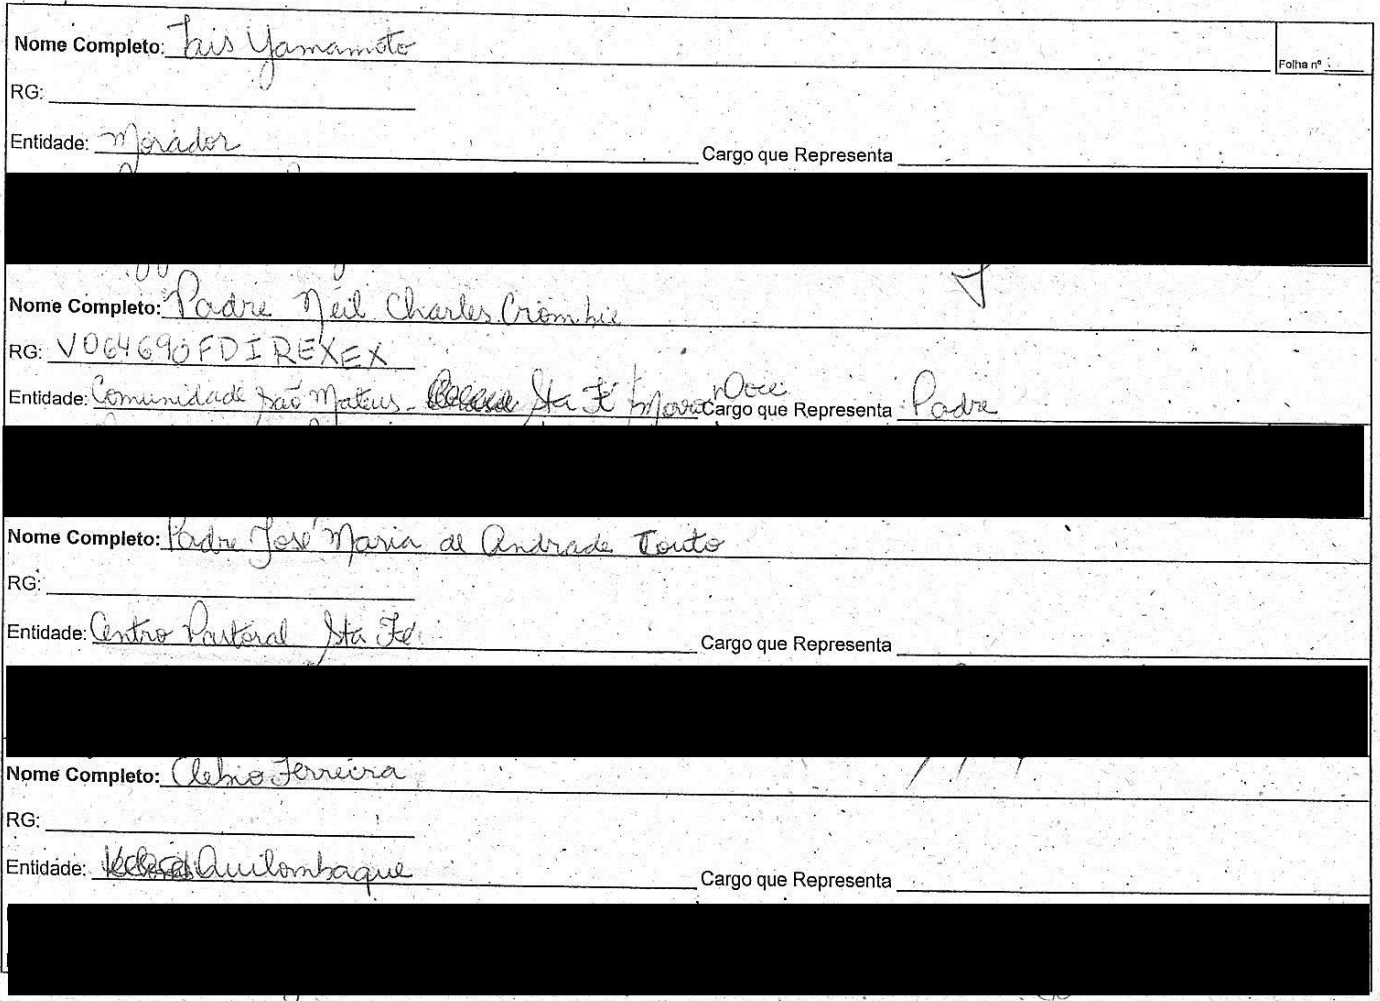 Nome Completo: Tais Yamamoto
Folha nº
RG:
Entidade: Morador Cargo que Representa
Nome Completo: Padre Neil Charles Crombie
RG: V064690FDIREXEX
Entidade: Comunidade São Mateus - Sta Fé Morro Doce Cargo que Representa Padre
Nome Completo: Padre José Maria de Andrade Couto
RG:
Entidade: Centro Pastoral Sta Fé Cargo que Representa
Nome Completo: Clebio Ferreira
RG:
Entidade: Quilombaque Cargo que Representa